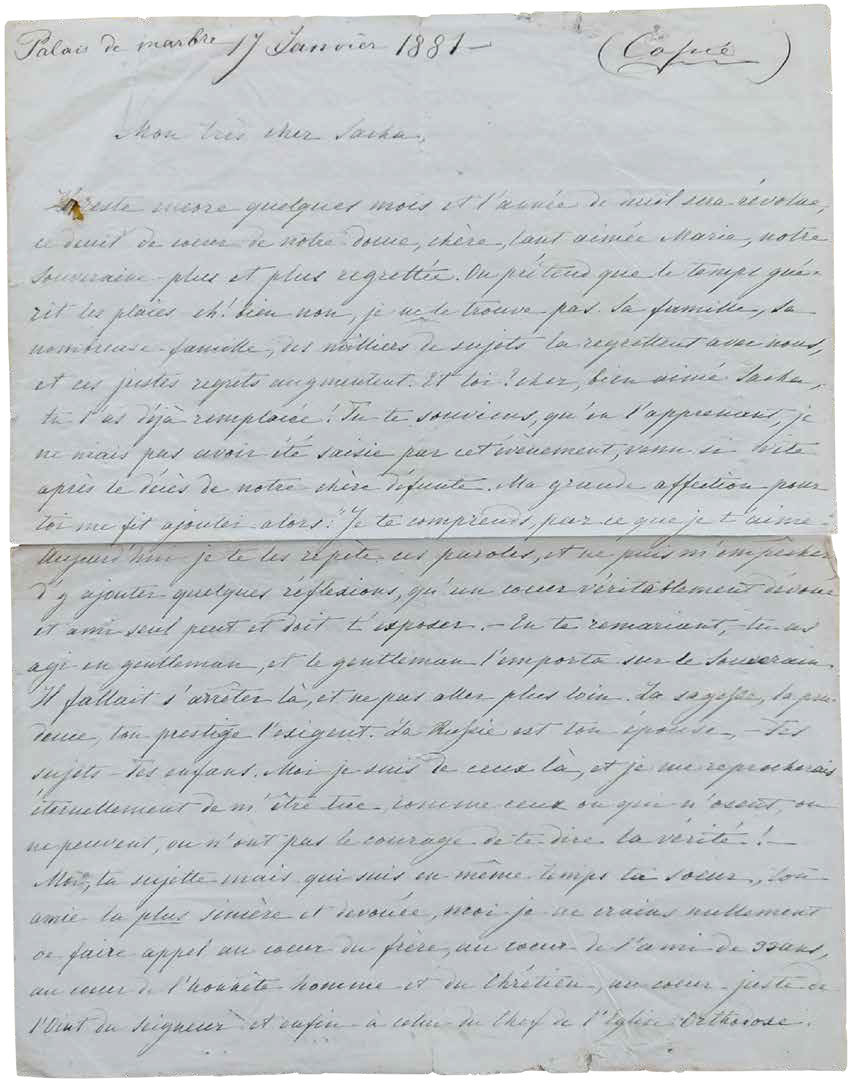 Palais de marbre 17 Janvier 1881 — (Copié)
Mon très cher Sacha,
Il reste encore quelques mois et l'année de deuil sera révolue,
ce deuil de coeur de notre douce, chère, tant aimée Marie, notre
Souveraine plus et plus regrettée. On prétend que le temps gué-
rit les plaies eh! bien non, je ne le trouve pas. Sa famille, sa
nombreuse famille, des milliers de sujets la regrettent avec nous,
et ces justes regrets augmentent. Et toi? cher, bien aimé Sacha,
tu l'as déjà remplacée! Tu te souviens, qu'en l'apprenant, je
ne niais pas avoir été saisie par cet évènement, venu si vite
après le décès de notre chère défunte. Ma grande affection pour
toi me fit ajouter alors: "Je te comprends, parce que je t'aime.
Aujourd'hui je te les répète ces paroles, et ne puis m'empêcher
d'y ajouter quelques réflexions, qu'un coeur véritablement dévoué
et ami seul peut et doit t'exposer. — En te remariant, tu as
agi en gentleman, et le gentleman l'emporta sur le Souverain.
Il fallait s'arrêter là, et ne pas aller plus loin. La sagesse, la pru-
dence, ton prestige l'exigent. La Russie est ton épouse, — Tes
sujets — Tes enfans. Moi je suis de ceux là, et je me reprocherais
éternellement de m'être tue, comme ceux ou qui n'osent, ou
ne peuvent, ou n'ont pas le courage de te dire la vérité! —
Moi, ta sujette mais qui suis en même temps ta soeur, ton
amie la plus sincère et dévouée, moi je ne crains nullement
de faire appel au coeur du frère, au coeur de l'ami de 33 ans,
au coeur de l'honnête homme et du Chrétien, au coeur juste de
l'Oint du Seigneur et enfin à celui du Chef de l'Eglise Orthodoxe.